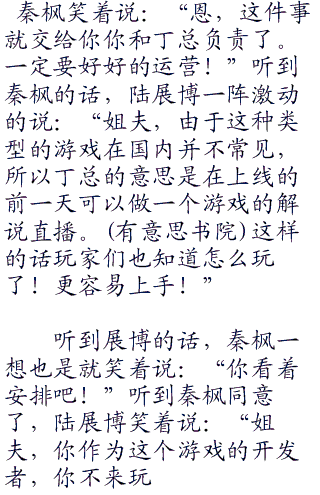 秦枫笑着说：“恩，这件事
就交给你你和丁总负责了。
一定要好好的运营！”听到
秦枫的话，陆展博一阵激动
的说：“姐夫，由于这种类
型的游戏在国内并不常见，
所以丁总的意思是在上线的
前一天可以做一个游戏的解
说直播。(有意思书院)这样
的话玩家们也知道怎么玩
了！更容易上手！”
听到展博的话，秦枫一
想也是就笑着说：“你看着
安排吧！”听到秦枫同意
了，陆展博笑着说：“姐
夫，你作为这个游戏的开发
者，你不来玩